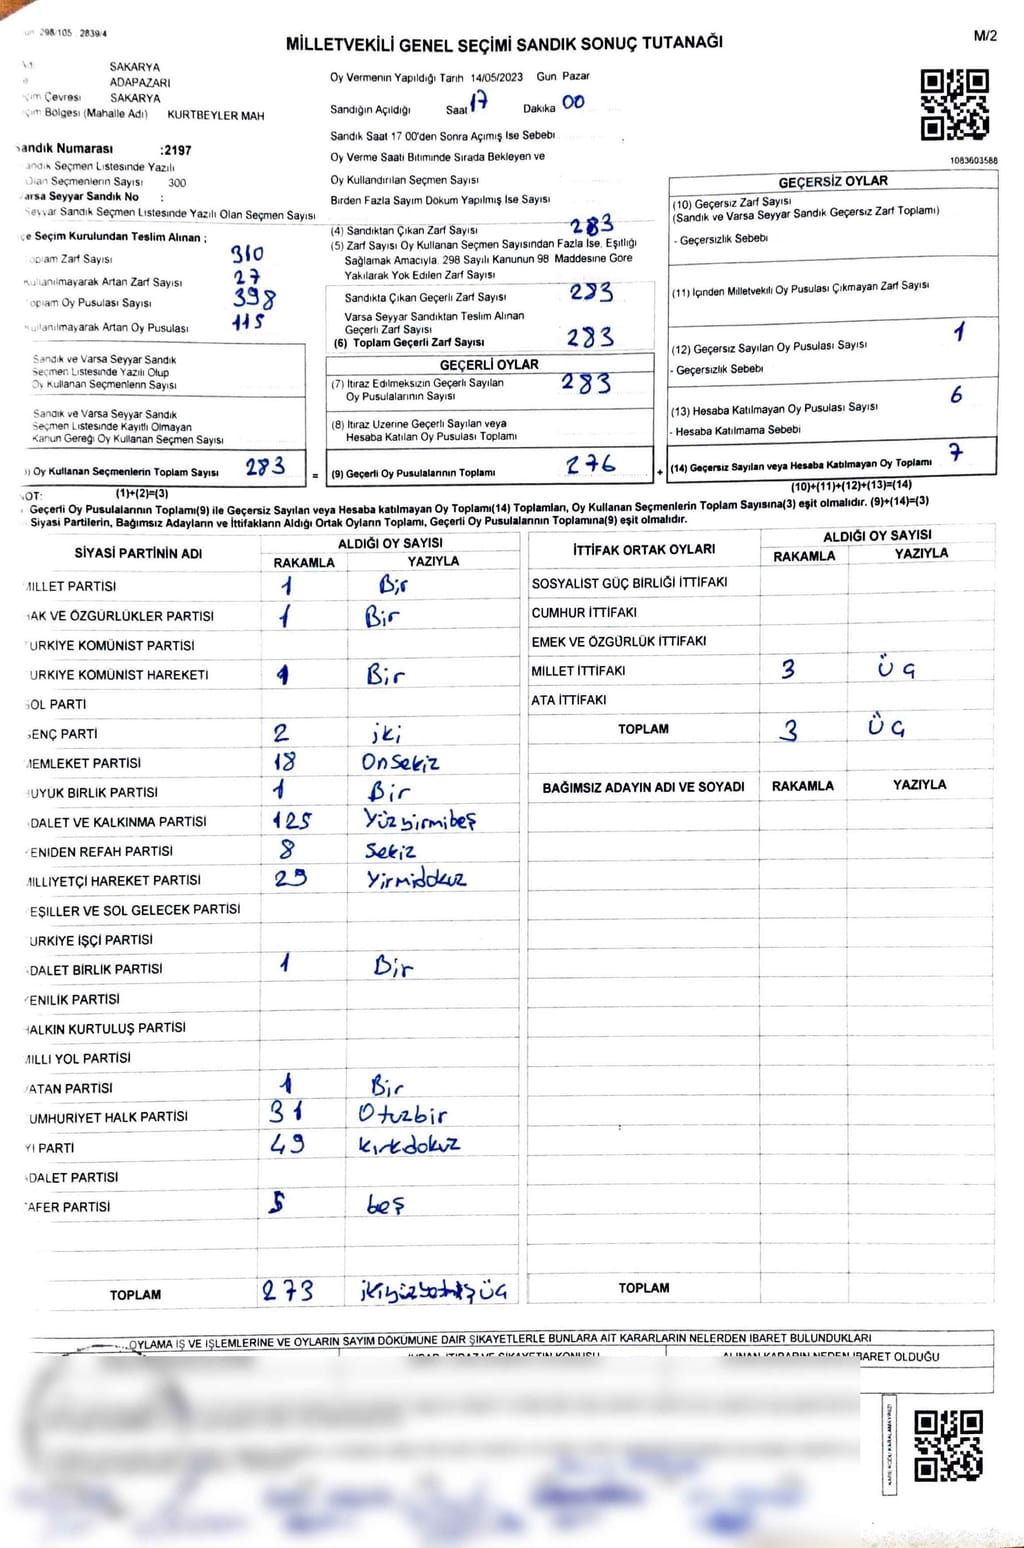 298/105 2839/4
M/2
MİLLETVEKİLİ GENEL SEÇİMİ SANDIK SONUÇ TUTANAĞI
SAKARYA
ADAPAZARI
Çevresi SAKARYA
Bölgesi (Mahalle Adı) KURTBEYLER MAH
Oy Vermenin Yapıldığı Tarih 14/05/2023 Gun Pazar
Sandığın Açıldığı Saat 17 Dakika 00
Sandık Saat 17 00'den Sonra Açımış Ise Sebebi
Oy Verme Saati Bitiminde Sırada Bekleyen ve
Oy Kullandırılan Seçmen Sayısı
Birden Fazla Sayım Dokum Yapılmış İse Sayısı
1083603588
andık Numarası :2197
Sandık Seçmen Listesinde Yazılı
Olan Seçmenlerin Sayısı 300
arsa Seyyar Sandık No :
Seyyar Sandık Seçmen Listesinde Yazılı Olan Seçmen Sayısı
çe Seçim Kurulundan Teslim Alınan ;
oplam Zarf Sayısı 310
Kullanılmayarak Artan Zarf Sayısı 27
oplam Oy Pusulası Sayısı 398
Kullanılmayarak Artan Oy Pusulası 115
Sandık ve Varsa Seyyar Sandık
Seçmen Listesinde Yazılı Olup
Oy Kullanan Seçmenlerin Sayısı
Sandık ve Varsa Seyyar Sandık
Seçmen Listesinde Kayıtlı Olmayan
Kanun Gereği Oy Kullanan Seçmen Sayısı
) Oy Kullanan Seçmenlerin Toplam Sayısı 283 =
(1)+(2)=(3)
(4) Sandıktan Çıkan Zarf Sayısı 283
(5) Zarf Sayısı Oy Kullanan Seçmen Sayısından Fazla Ise, Eşitliği
Sağlamak Amacıyla, 298 Sayılı Kanunun 98 Maddesine Gore
Yakılarak Yok Edilen Zarf Sayısı
Sandıkta Çıkan Geçerli Zarf Sayısı 283
Varsa Seyyar Sandıktan Teslim Alınan
Geçerli Zarf Sayısı
(6) Toplam Geçerli Zarf Sayısı 283
GEÇERLİ OYLAR
(7) Itıraz Edilmeksizin Geçerli Sayılan
Oy Pusulalarının Sayısı 283
(8) Itıraz Uzerine Geçerli Sayılan veya
Hesaba Katılan Oy Pusulası Toplamı
(9) Geçerli Oy Pusulalarının Toplamı 276 +
GEÇERSİZ OYLAR
(10) Geçersiz Zarf Sayısı
(Sandık ve Varsa Seyyar Sandık Geçersiz Zarf Toplamı)
- Geçersizlik Sebebi
(11) İçinden Milletvekili Oy Pusulası Çıkmayan Zarf Sayısı
(12) Geçersiz Sayılan Oy Pusulası Sayısı 1
- Geçersizlik Sebebi
(13) Hesaba Katılmayan Oy Pusulası Sayısı 6
- Hesaba Katılmama Sebebi
(14) Geçersiz Sayılan veya Hesaba Katılmayan Oy Toplamı 7
(10)+(11)+(12)+(13)=(14)
OT:
Geçerli Oy Pusulalarının Toplamı(9) ile Geçersiz Sayılan veya Hesaba katılmayan Oy Toplamı(14) Toplamları, Oy Kullanan Seçmenlerin Toplam Sayısına(3) eşit olmalıdır. (9)+(14)=(3)
Siyasi Partilerin, Bağımsız Adayların ve İttifakların Aldığı Ortak Oyların Toplamı, Geçerli Oy Pusulalarının Toplamına(9) eşit olmalıdır.
SİYASİ PARTİNİN ADI ALDIĞI OY SAYISI
RAKAMLA YAZIYLA
MİLLET PARTİSİ 1 Bir
AK VE ÖZGÜRLÜKLER PARTİSİ 1 Bir
URKİYE KOMÜNİST PARTİSİ
URKİYE KOMÜNİST HAREKETİ 1 Bir
SOL PARTİ
ENÇ PARTİ 2 iki
MEMLEKET PARTİSİ 18 Onsekiz
UYUK BİRLİK PARTİSİ 1 Bir
DALET VE KALKINMA PARTİSİ 125 Yüzyirmibeş
ENİDEN REFAH PARTİSİ 8 Sekiz
MİLLİYETÇİ HAREKET PARTİSİ 29 Yirmidokuz
EŞİLLER VE SOL GELECEK PARTİSİ
URKİYE İŞÇİ PARTİSİ
DALET BİRLİK PARTİSİ 1 Bir
ENİLİK PARTİSİ
ALKIN KURTULUŞ PARTİSİ
MİLLİ YOL PARTİSİ
ATAN PARTİSİ 1 Bir
UMHURİYET HALK PARTİSİ 31 Otuzbir
Yİ PARTİ 49 kırkdokuz
DALET PARTİSİ
AFER PARTİSİ 5 beş
TOPLAM 273 ikiyüzyetmişüç
İTTİFAK ORTAK OYLARI ALDIĞI OY SAYISI
RAKAMLA YAZIYLA
SOSYALİST GÜÇ BİRLİĞİ İTTİFAKI
CUMHUR İTTİFAKI
EMEK VE ÖZGÜRLÜK İTTİFAKI
MİLLET İTTİFAKI 3 ÜÇ
ATA İTTİFAKI
TOPLAM 3 ÜÇ
BAĞIMSIZ ADAYIN ADI VE SOYADI RAKAMLA YAZIYLA
TOPLAM
OYLAMA İŞ VE İŞLEMLERİNE VE OYLARIN SAYIM DÖKÜMÜNE DAİR ŞİKAYETLERLE BUNLARA AİT KARARLARIN NELERDEN İBARET BULUNDUKLARI
ALINAN KARARIN NEDEN İBARET OLDUĞU